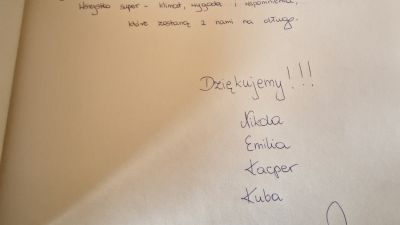 Wszystko super - klimat, wygoda i wspomnienia,
które zostaną z nami na długo.
Dziękujemy!!!
Nikola
Emilia
Kacper
Kuba